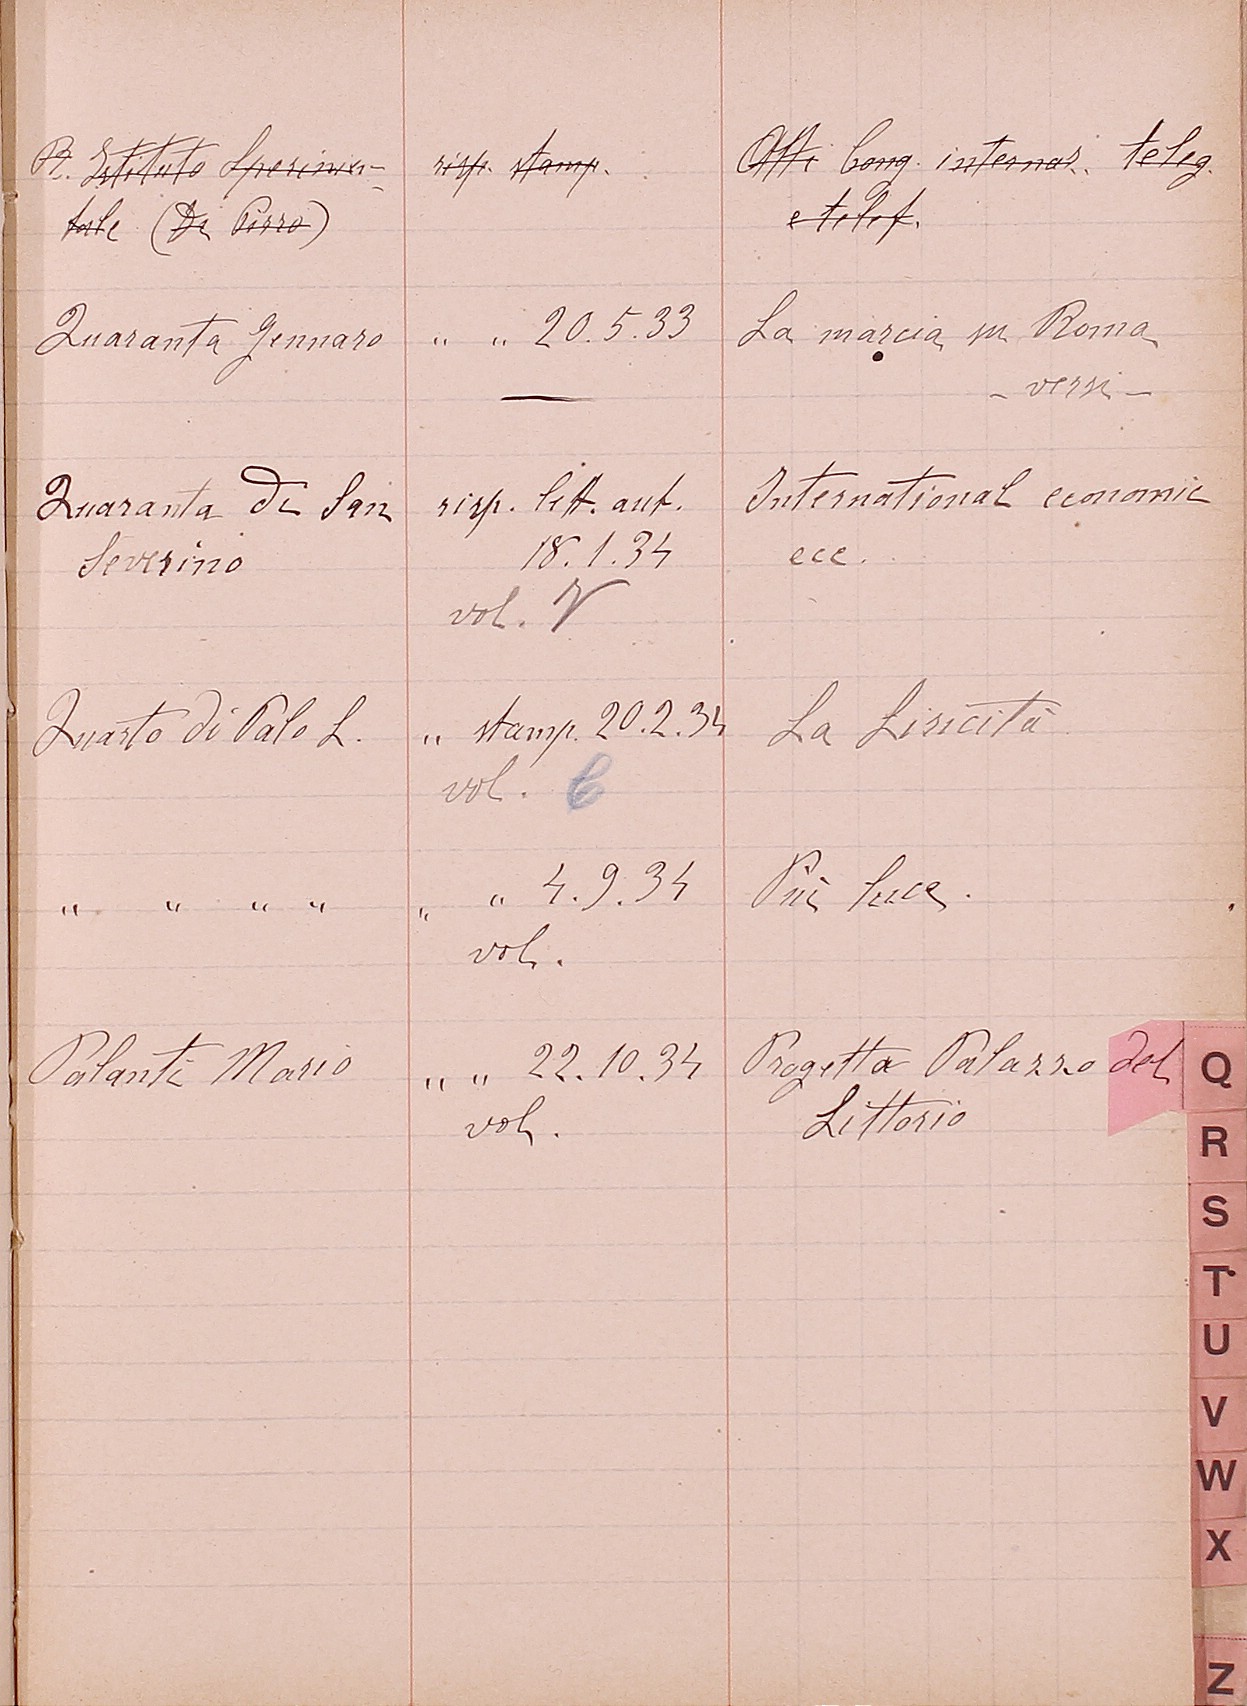 R. Istituto Sperimen- risp. stamp. Atti Cong. internaz. teleg.
tale (Di Pirro) e telef.
Quaranta Gennaro " " 20.5.33 La marcia su Roma
- versi -
Quaranta di San risp. lett. aut. International economic
Severino 18.1.34 ecc.
vol. V
Quarto di Palo L. " stamp. 20.2.34 La Liricità
vol. C
" " " " " " 4.9.34 Più luce.
vol.
Palanti Mario " " 22.10.34 Progetto Palazzo del
vol. Littorio
Q
R
S
T
U
V
W
X
Z